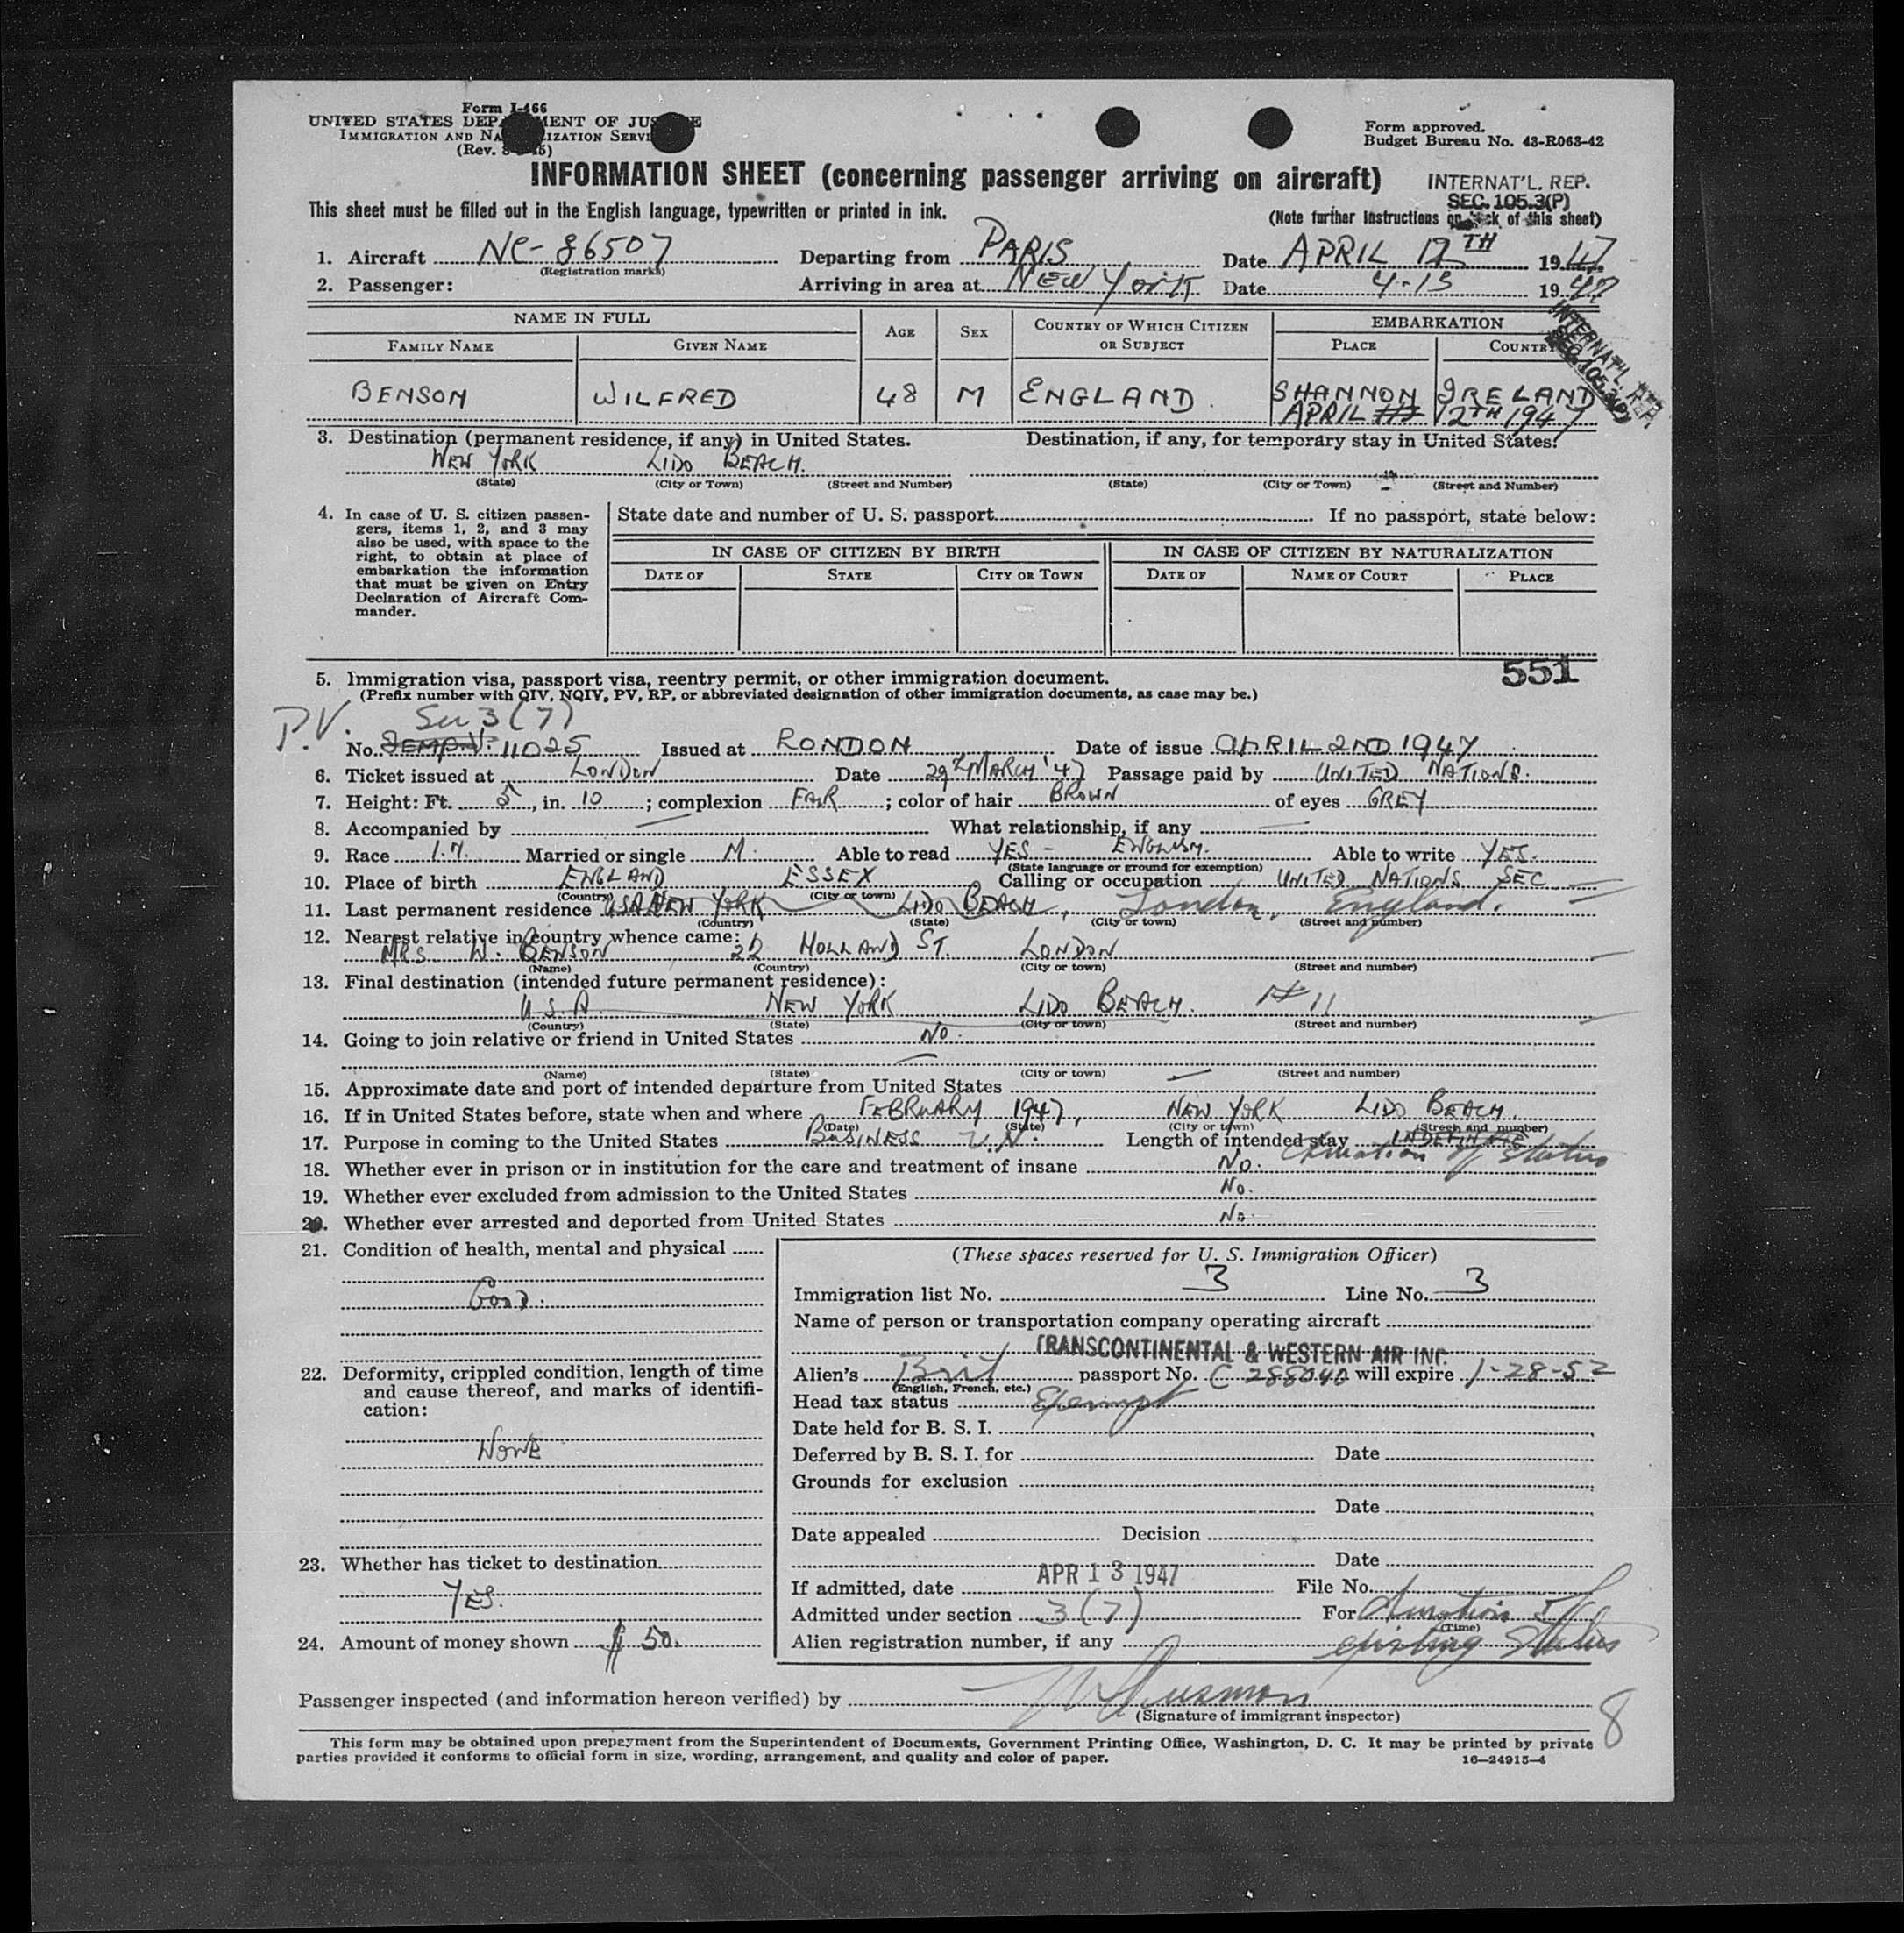 Form I-466
UNITED STATES DEPARTMENT OF JUSTICE
IMMIGRATION AND NATURALIZATION SERVICE
(Rev.
Form approved.
Budget Bureau No. 43-R063-42
INFORMATION SHEET (concerning passenger arriving on aircraft)
INTERNAT'L. REP.
SEC. 105.3(P)
This sheet must be filled out in the English language, typewritten or printed in ink.
(Note further instructions on back of this sheet)
1. Aircraft NC-86507 Departing from PARIS Date APRIL 12TH 1947
(Registration marks)
2. Passenger: Arriving in area at NEW YORK Date 4-13 1947
INTERNAT'L. REP.
SEC. 105.3(P)
NAME IN FULL AGE SEX COUNTRY OF WHICH CITIZEN OR SUBJECT EMBARKATION
FAMILY NAME GIVEN NAME PLACE COUNTRY
BENSON WILFRED 48 M ENGLAND. SHANNON IRELAND
APRIL 12TH 1947
3. Destination (permanent residence, if any) in United States. Destination, if any, for temporary stay in United States.
NEW YORK LIDO BEACH.
(State) (City or Town) (Street and Number) (State) (City or Town) (Street and Number)
4. In case of U. S. citizen passen-
gers, items 1, 2, and 3 may
also be used, with space to the
right, to obtain at place of
embarkation the information
that must be given on Entry
Declaration of Aircraft Com-
mander.
State date and number of U. S. passport If no passport, state below:
IN CASE OF CITIZEN BY BIRTH IN CASE OF CITIZEN BY NATURALIZATION
DATE OF STATE CITY OR TOWN DATE OF NAME OF COURT PLACE
551
5. Immigration visa, passport visa, reentry permit, or other immigration document.
(Prefix number with QIV, NQIV, PV, RP, or abbreviated designation of other immigration documents, as case may be.)
P.V. Sec 3(7)
No. TEMP.V. 11025 Issued at LONDON Date of issue APRIL 2ND 1947
6. Ticket issued at LONDON Date 29th MARCH '47 Passage paid by UNITED NATIONS.
7. Height: Ft. 5, in. 10; complexion FAIR; color of hair BROWN of eyes GREY
8. Accompanied by — What relationship, if any —
9. Race Married or single M. Able to read YES - ENGLISH. Able to write YES.
(State language or ground for exemption)
10. Place of birth ENGLAND ESSEX Calling or occupation UNITED NATIONS SEC
(Country) (City or town)
11. Last permanent residence USA NEW YORK LIDO BEACH, London, England.
(Country) (State) (City or town) (Street and number)
12. Nearest relative in country whence came:
MRS. W. BENSON 22 HOLLAND ST. LONDON
(Name) (Country) (City or town) (Street and number)
13. Final destination (intended future permanent residence):
U.S.A. NEW YORK LIDO BEACH. # 11
(Country) (State) (City or town) (Street and number)
14. Going to join relative or friend in United States No.
(Name) (State) (City or town) (Street and number)
15. Approximate date and port of intended departure from United States —
16. If in United States before, state when and where FEBRUARY 1947, NEW YORK LIDO BEACH.
(Date) (State) (City or town) (Street and number)
17. Purpose in coming to the United States BUSINESS U.N. Length of intended stay INDEFINITE duration of status
18. Whether ever in prison or in institution for the care and treatment of insane No.
19. Whether ever excluded from admission to the United States No.
20. Whether ever arrested and deported from United States No.
21. Condition of health, mental and physical
Good.
22. Deformity, crippled condition, length of time
and cause thereof, and marks of identifi-
cation:
NONE
23. Whether has ticket to destination
YES.
24. Amount of money shown $ 50.
(These spaces reserved for U. S. Immigration Officer)
Immigration list No. 3 Line No. 3
Name of person or transportation company operating aircraft
TRANSCONTINENTAL & WESTERN AIR INC.
Alien's Brit passport No. C 288040 will expire 1-28-52
(English, French, etc.)
Head tax status Exempt
Date held for B. S. I.
Deferred by B. S. I. for Date
Grounds for exclusion
Date
Date appealed Decision
Date
If admitted, date APR 13 1947 File No.
Admitted under section 3(7) For duration of
(Time)
Alien registration number, if any existing status
Passenger inspected (and information hereon verified) by
(Signature of immigrant inspector)
8
This form may be obtained upon prepayment from the Superintendent of Documents, Government Printing Office, Washington, D. C. It may be printed by private
parties provided it conforms to official form in size, wording, arrangement, and quality and color of paper.
16—24915-4